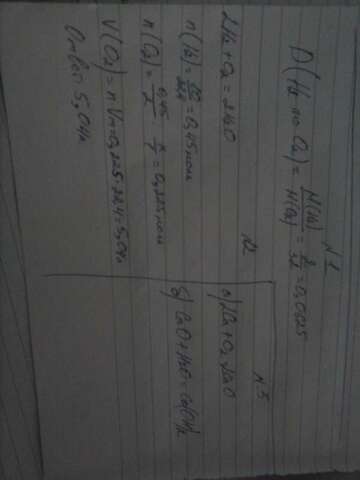 N 1
D(H₂ по O₂) = M(H₂)/M(O₂) = 2/32 = 0,0625
N2
2H₂ + O₂ = 2H₂O
n(H₂) = 10/22,4 = 0,45 моль
n(O₂) = 0,45/2 · 1/1 = 0,225 моль
V(O₂) = n·Vm = 0,225·22,4 = 5,04л
Ответ: 5,04л
N 3
а) 2Ca + O₂ = 2CaO
б) CaO + H₂O = Ca(OH)₂